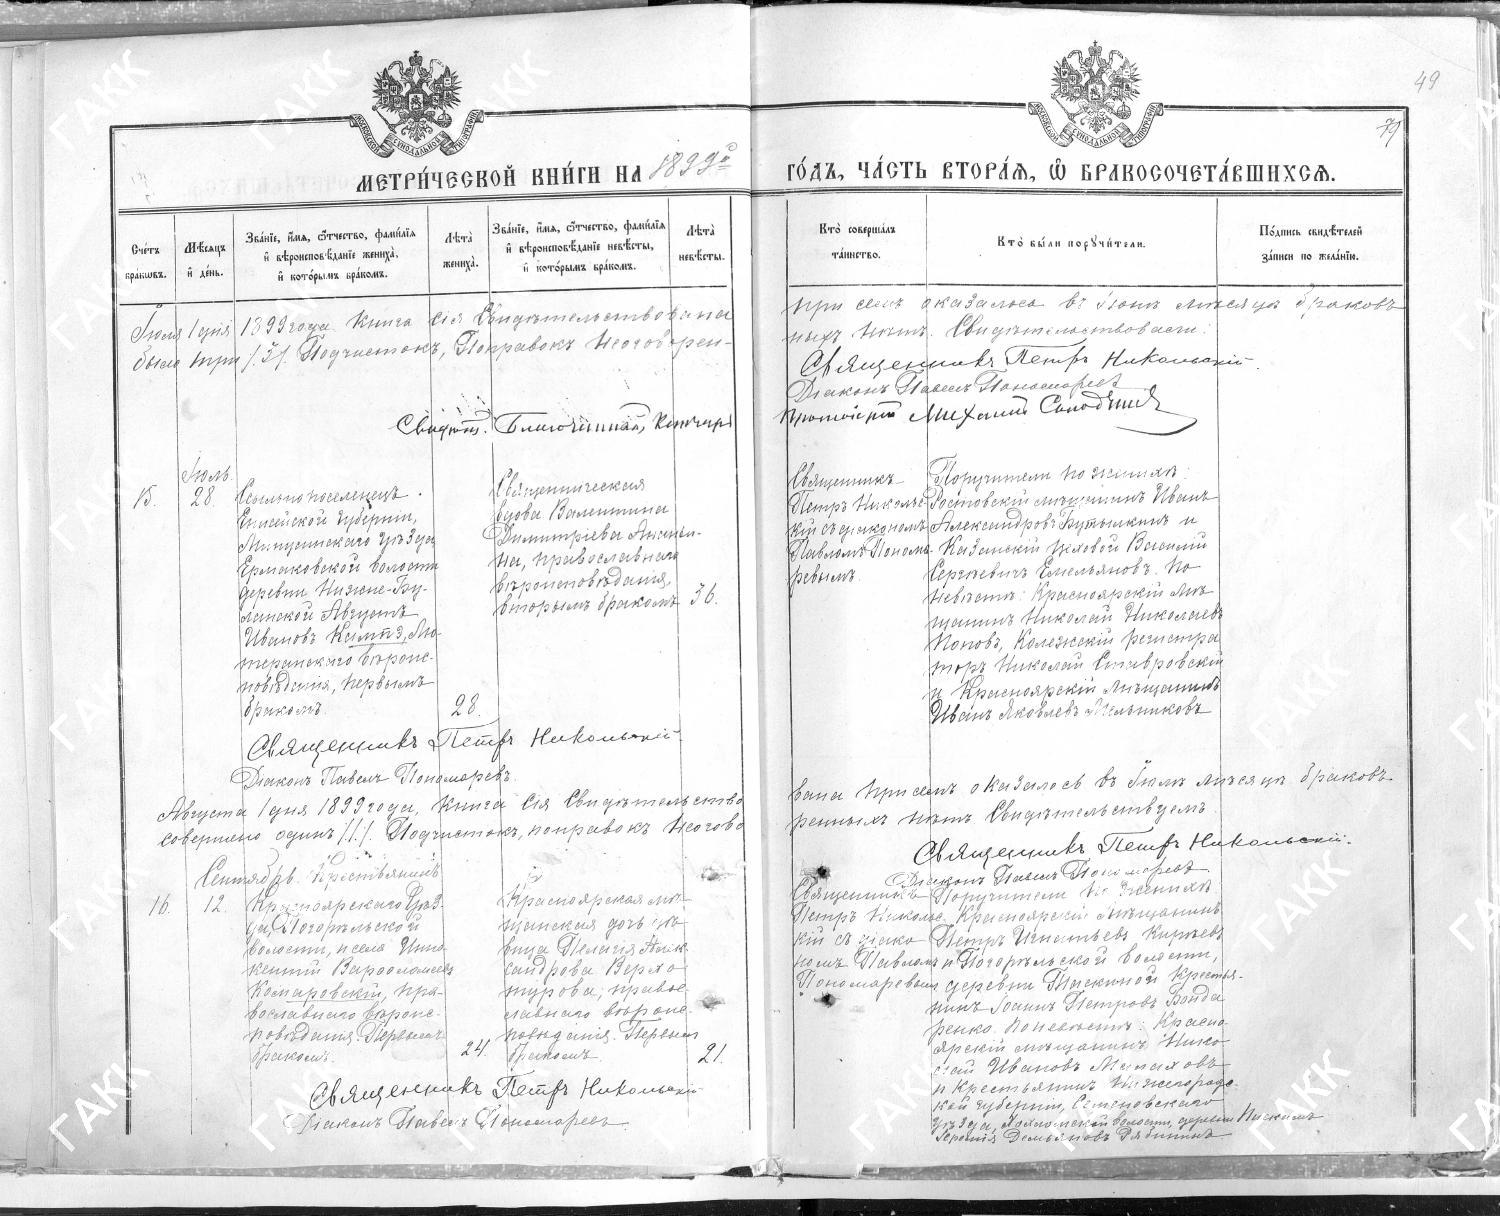 49
79
МЕТРИ́ЧЕСКОЙ КНИ́ГИ НА 1899й
ГО́ДЪ, ЧА́СТЬ ВТОРА́Я, Ѡ҆ БРАКОСОЧЕТА́ВШИХСЯ.
Сче́тъ бра́ковъ.
Мѣ́сяцъ и҆ де́нь.
Зва́нїе, и҆́мя, ѻ҆́тчество, фами́лїя
и҆ вѣроисповѣ́данїе жениха̀,
и҆ кото́рымъ бра́комъ.
Лѣ́та жениха̀.
Зва́нїе, и҆́мя, ѻ҆́тчество, фами́лїя
и҆ вѣроисповѣ́данїе невѣ́сты,
и҆ кото́рымъ бра́комъ.
Лѣ́та невѣ́сты.
Кто̀ соверша́лъ
та́инство.
Кто̀ бы́ли поручи́тели.
По́дпись свидѣ́телей
за́писи по жела́нїю.
Іюля 1 дня 1899 года Книга сія Свидѣтельствована
при семъ оказалось въ Іюнѣ мѣсяцѣ браковъ
было три /3/ Подчистокъ, Поправокъ неоговорен-
ныхъ нѣтъ. Свидѣтельствовали:
Священникъ Петръ Никольскій.
Діаконъ Павелъ Пономаревъ
Благочинный,
Протоіерей Михаилъ
Іюль
15.
28.
Ссыльнопоселенецъ
Енисейской губерніи,
Минусинскаго уѣзда
Ермаковской волости
деревни Нижне-Бу-
ланской Августъ
Ивановъ Кампэ, Лю-
теранскаго вѣроис-
повѣданія, первымъ
бракомъ.
28.
Священническая
вдова Валентина
Димитріева
на, православнаго
вѣроисповѣданія,
вторымъ бракомъ
36.
Священникъ
Петръ Николь-
скій съ діакономъ
Павломъ Понома-
ревымъ.
Поручители по женихѣ:
Ростовскій мѣщанинъ Иванъ
Александровъ Бутылкинъ и
Казанскій цеховой Василій
Сергѣевичъ Емельяновъ. По
невѣстѣ: Красноярскій мѣ-
щанинъ Николай Николаевъ
Поповъ, Колежскій регистра
торъ Николай Ставровскій
и Красноярскій мѣщанинъ
Иванъ Яковлевъ Мельниковъ
Священникъ Петръ Никольскій.
Діаконъ Павелъ Пономаревъ.
Августа 1 дня 1899 года, книга сія Свидѣтельство
вана при семъ оказалось въ Іюлѣ мѣсяцѣ браковъ
совершено одинъ /1/. Подчистокъ, поправокъ неогово
ренныхъ нѣтъ Свидѣтельствуемъ.
Священникъ Петръ Никольскій.
Діаконъ Павелъ Пономаревъ
Сентябрь.
16.
12.
Крестьянинъ
Красноярскаго уѣз-
да, Погорѣльской
волости, и села Инно-
кентій Варѳоломеевъ
Комаровскій, пра-
вославнаго вѣроис-
повѣданія. Первымъ
бракомъ.
24.
Красноярская мѣ-
щанская дочь дѣ-
вица Пелагія Алек-
сандрова Верхо
турова, правос-
лавнаго вѣроис-
повѣданія. Первымъ
бракомъ.
21.
Священникъ
Петръ Николь-
скій съ діако-
номъ Павломъ
Пономаревымъ
Поручители по женихѣ
Красноярскій мѣщанинъ
Петръ Игнатьевъ Кирѣевъ
и Погорѣльской волости,
деревни Таскиной крестья-
нинъ Іоаннъ Петровъ Бонда
ренко. По невѣстѣ: Красно-
ярскій мѣщанинъ Нико-
лай Ивановъ Малаховъ
и крестьянинъ Нижегородс-
кой губерніи, Семеновскаго
уѣзда, Хохломской волости, деревни
Демьяновъ Рябининъ
Священникъ Петръ Никольскій
Діаконъ Павелъ Пономаревъ.